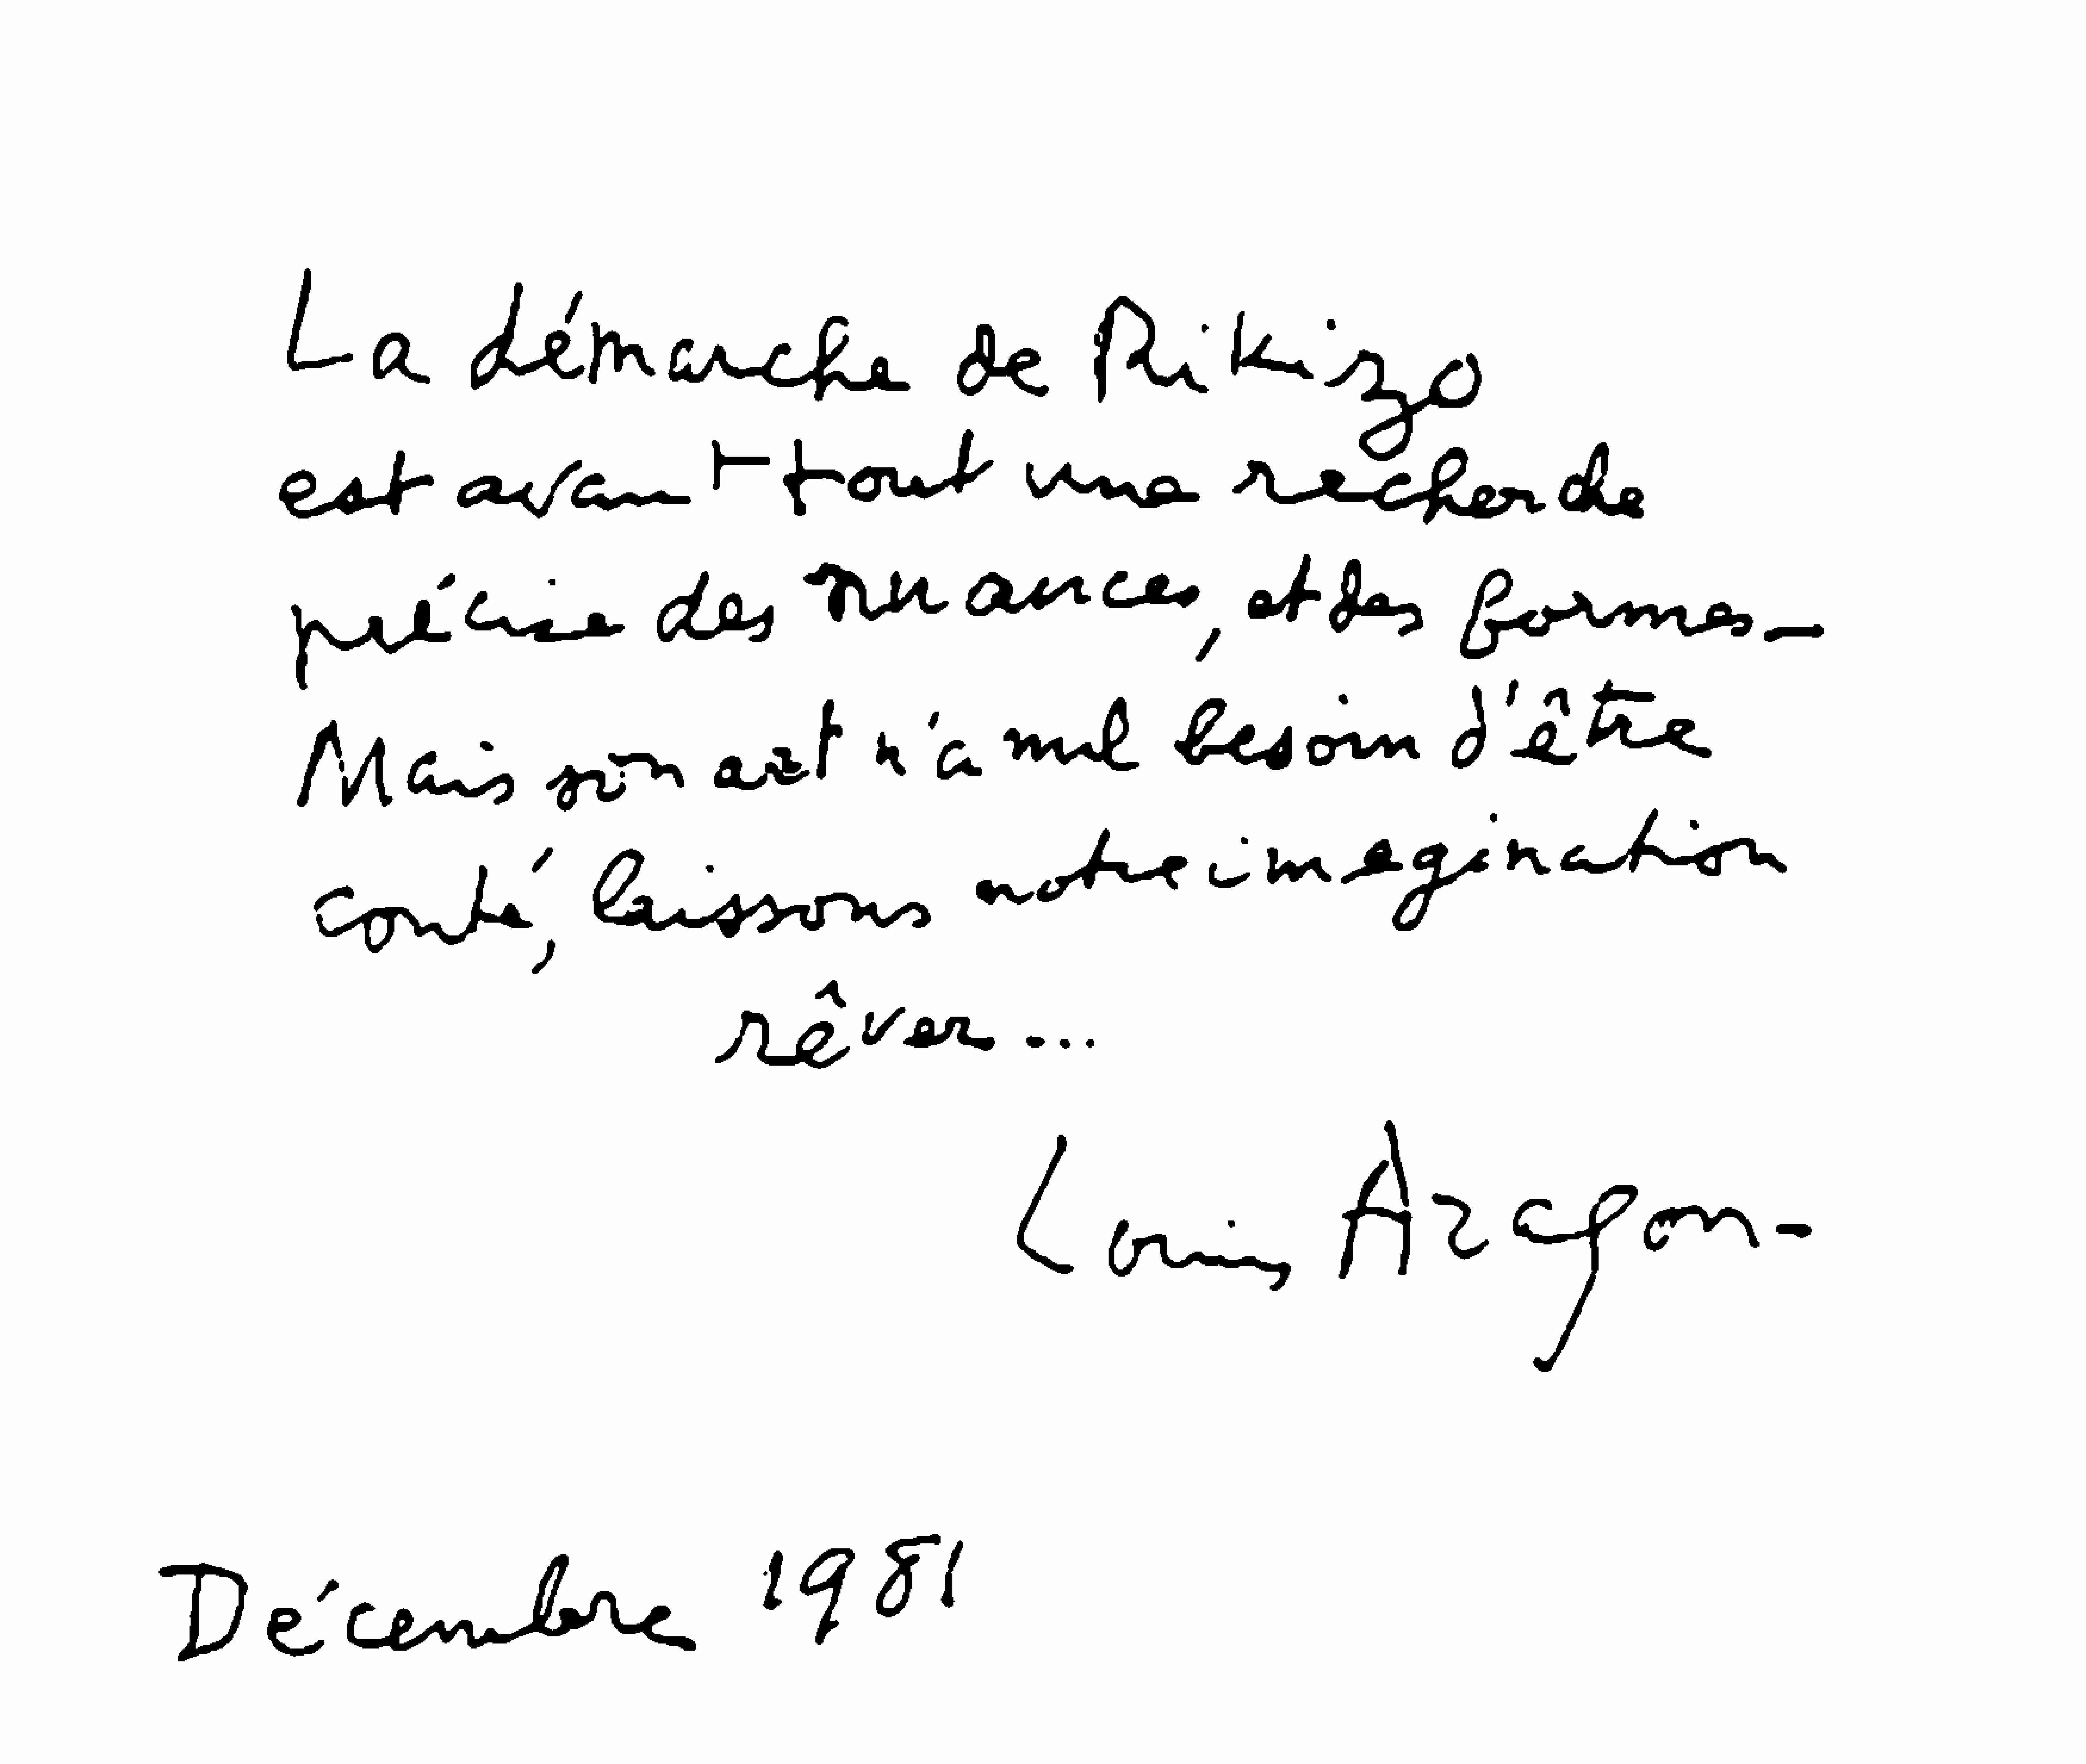 La démarche de Rikizo
est avant tout une recherche
précise des nuances, et des formes -
Mais son art n'a nul besoin d'être
conté, laissons notre imagination
rêver ...
Louis Aragon -
Décembre 1981